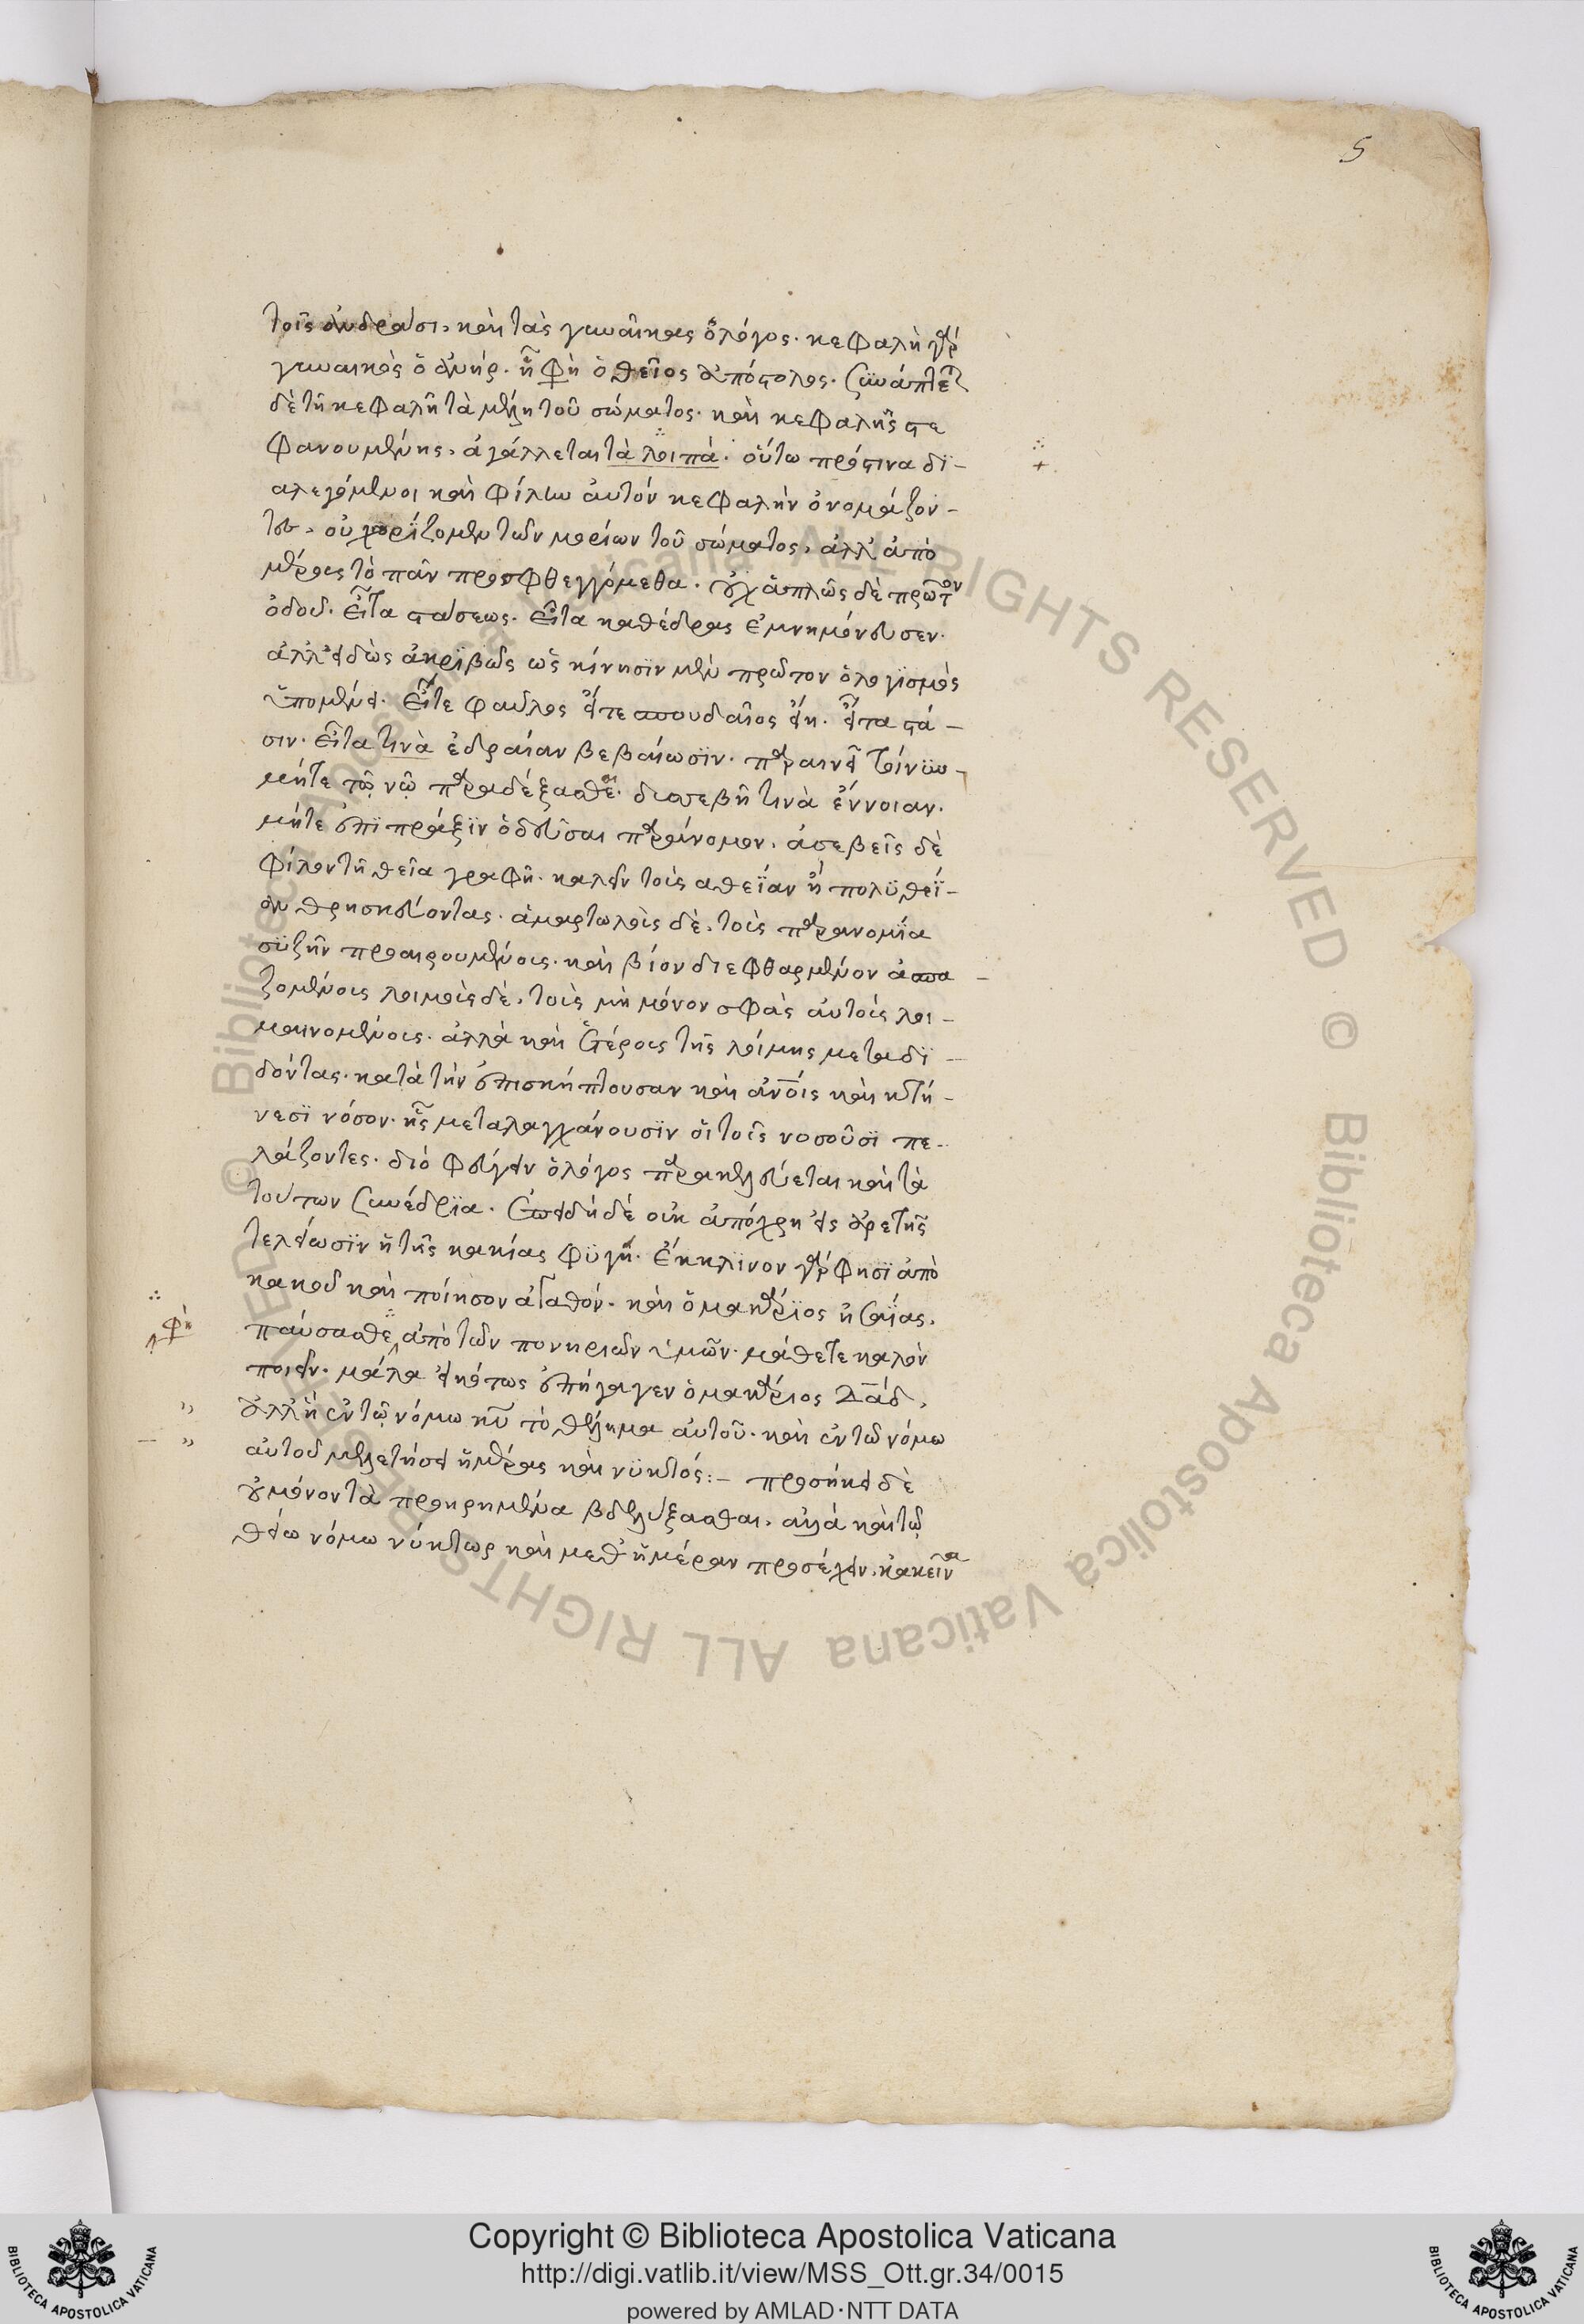 5
τοῖς ἀνδράσι, καὶ τὰς γυναῖκας ὁ λόγος· κεφαλὴ γὰρ
γυναικὸς ὁ ἀνήρ· ᾗ φη ὁ θεῖος ἀπόστολος· συνάπτεται
δὲ τῆ κεφαλῆ τὰ μέλη τοῦ σώματος· καὶ κεφαλῆς στε
φανουμένης, ἀγάλλεται τὰ λοιπά· οὕτω πρός τινα δϊ-
αλεγόμενοι καὶ φίλην αὐτόν κεφαλὴν ὀνομάζον-
τες, οὐ χωρίζομεν τῶν μορίων τοῦ σώματος, ἀλλ' ἀπὸ
μέρους τὸ πᾶν προσφθεγγόμεθα· οὐχ ἁπλῶς δὲ πρῶτον
ὁδοῦ· εἶτα στάσεως· εἶτα καθέδρας ἐμνημόνευσεν·
ἀλλ' εἰδὼς ἀκρϊβῶς ὡς κίνησϊν μὲν πρῶτον ὁ λογϊσμὸς
ὑπομένει· εἴτε φαῦλος εἴτε σπουδαῖος εἴη· εἶτα στά-
σιν· εἶτα τινὰ ἑδραίαν βεβαίωσϊν· παραινεῖ τοίνυν
μήτε τῷ νῷ παραδέξασθαι δυσσεβῆ τινὰ ἔννοιαν·
μήτε ἐπὶ πρᾶξϊν ὁδεῦσαι παράνομον· ἀσεβεῖς δὲ
φίλον τῆ θεία γραφῆ· καλεῖν τοὺς ἀθεΐαν ἢ πολϋθεΐ-
αν θρησκεύοντας· ἁμαρτωλοὺς δὲ, τοὺς παρανομία
συζῆν προαιρουμένους· καὶ βίον διεφθαρμένον ἀσπα-
ζομένους λοιμοὺς δὲ, τοὺς μὴ μόνον σφᾶς αὐτοὺς λοι-
μαινομένους· ἀλλὰ καὶ ἑτέροις τῆς λοίμης μεταδϊ-
δόντας· κατὰ τὴν ἐπισκήπτουσαν καὶ ἀνοις καὶ κτή-
νεσϊ νόσον· ἧς μεταλαγχάνουσϊν οἱ τοῖς νοσοῦσϊ πε-
λάζοντες· διὸ φεύγειν ὁ λόγος παρακελεύεται καὶ τὰ
τούτων συνέδρϊα· ἐπειδὴ δὲ οὐκ ἀπόχρη εἰς ἀρετῆς
τελείωσϊν ἡ τῆς κακίας φϋγή· ἔκκλϊνον γάρ φησϊ ἀπὸ
κακοῦ καὶ ποίησον ἀγαθόν· καὶ ὁ μακάρϊος ἠσαΐας,
φη παύσασθε ἀπὸ τῶν πονηριῶν ὑμῶν· μάθετε καλὸν
ποιεῖν· μάλα εἰκότως ἐπήγαγεν ὁ μακάριος Δαδ,
ἀλλ' ἢ ἐν τῷ νόμω κυ τὸ θέλημα αὐτοῦ· καὶ ἐν τῶ νόμω
αὐτοῦ μελετήσει ἡμέρας καὶ νϋκτός:- προσήκει δὲ
οὐ μόνον τὰ προειρημένα βδελύξασθαι, ἀλλὰ καὶ τῷ
θείω νόμω νύκτωρ καὶ μεθ' ἡμέραν προσέχειν, κἀκεῖνα
Copyright © Biblioteca Apostolica Vaticana
http://digi.vatlib.it/view/MSS_Ott.gr.34/0015
powered by AMLAD·NTT DATA
BIBLIOTECA APOSTOLICA VATICANA
BIBLIOTECA APOSTOLICA VATICANA
© Biblioteca Apostolica Vaticana ALL RIGHTS RESERVED © Biblioteca Apostolica Vaticana ALL RIGHTS RESERVED